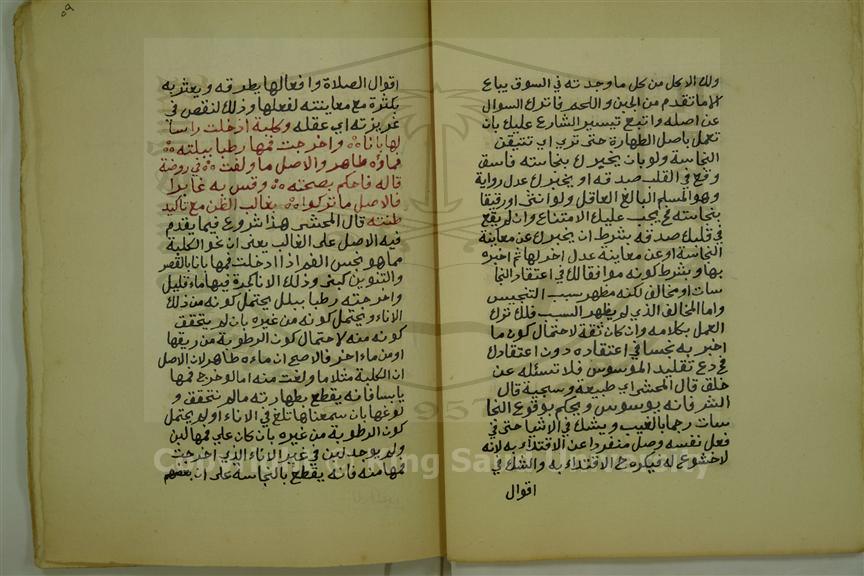 ولك الاكل من كل ما وجدته في السوق يباع
الا ما تقدم من الجبن واللحم فاترك السوال
عن اصله واتبع تيسير الشارع عليك بان
تعمل باصل الطهارة حتى تري اي تتيقن
النجاسة ولو بان يخبرك بنجاسته فاسق
وقع في القلب صدقه او يخبرك عدل رواية
وهو المسلم البالغ العاقل ولو انثى او رقيقا
بنجاسته فح يجب عليك الامتناع وان لم يقع
في قلبك صدقه بشرط ان يخبرك عن معاينة
النجاسة او عن معاينة عدل اخر لها ثم اخبره
بها وبشرط كونه موافقا لك في اعتقاد النجا
سات او مخالف لكنه مظهر سبب التنجيس
واما المخالف الذي لم يظهر السبب فلك ترك
العمل بكلامه وان كان ثقة لاحتمال كون ما
اخبر به نجسا في اعتقاده دون اعتقادك
فح دع تقليد الموسوس فلا تسئله عن
خلق قال المحشي اي طبيعة وسجية قال
الشر فانه يوسوس ويحكم بوقوع النجا
سات رجما بالغيب ويشك في الاشيا حتى في
فعل نفسه وصل منفردا عن الاقتداء به لانه
لا خشوع له فيكره الاقتداء به والشك في
اقوال
٥٩
اقوال الصلاة وافعالها يطرقه ويعثر به
بكثرة مع معاينته لفعلها وذلك لنقص في
غريزته اي عقله وكلبة ادخلت راسا
لها بانا واخرجت فمها رطبا ببلته
فماؤه طاهر والاصل ما ولغت في روضة
قاله فاحكم بصحته وقس به غايرا
فالاصل ما تركوا بغالب الظن مع تاكيد
ظنته قال المحشي هذا شروع فيما يقدم
فيه الاصل على الغالب يعني ان نحو الكلبة
مما هو نجس الفم اذا ادخلت فمها بانا بالقصر
والتنوين كبنى وذلك الانا كجرة فيها ماء قليل
واخرجته رطبا ببلل يحتمل كونه من ذلك
الاناء ويحتمل كونه من غيره بان لم يتحقق
كونه منه لاحتمال كون الرطوبة من ريقها
او من ماء اخر فالاصح ان ماءه طاهر لان الاصل
ان الكلبة مثلا ما ولغت منه اما لو خرج فمها
يابسا فانه يقطع بطهارته ما لم نتحقق و
لوغها بان سمعناها تلغ في الاناء ولم يحتمل
كون الرطوبة من غيره بان كان على فمها لبن
ولم يوجد لبن في غير الاناء الذي اخرجت
فمها منه فانه يقطع بالنجاسة على ان بعضهم
Copyright © King Saud University
1957